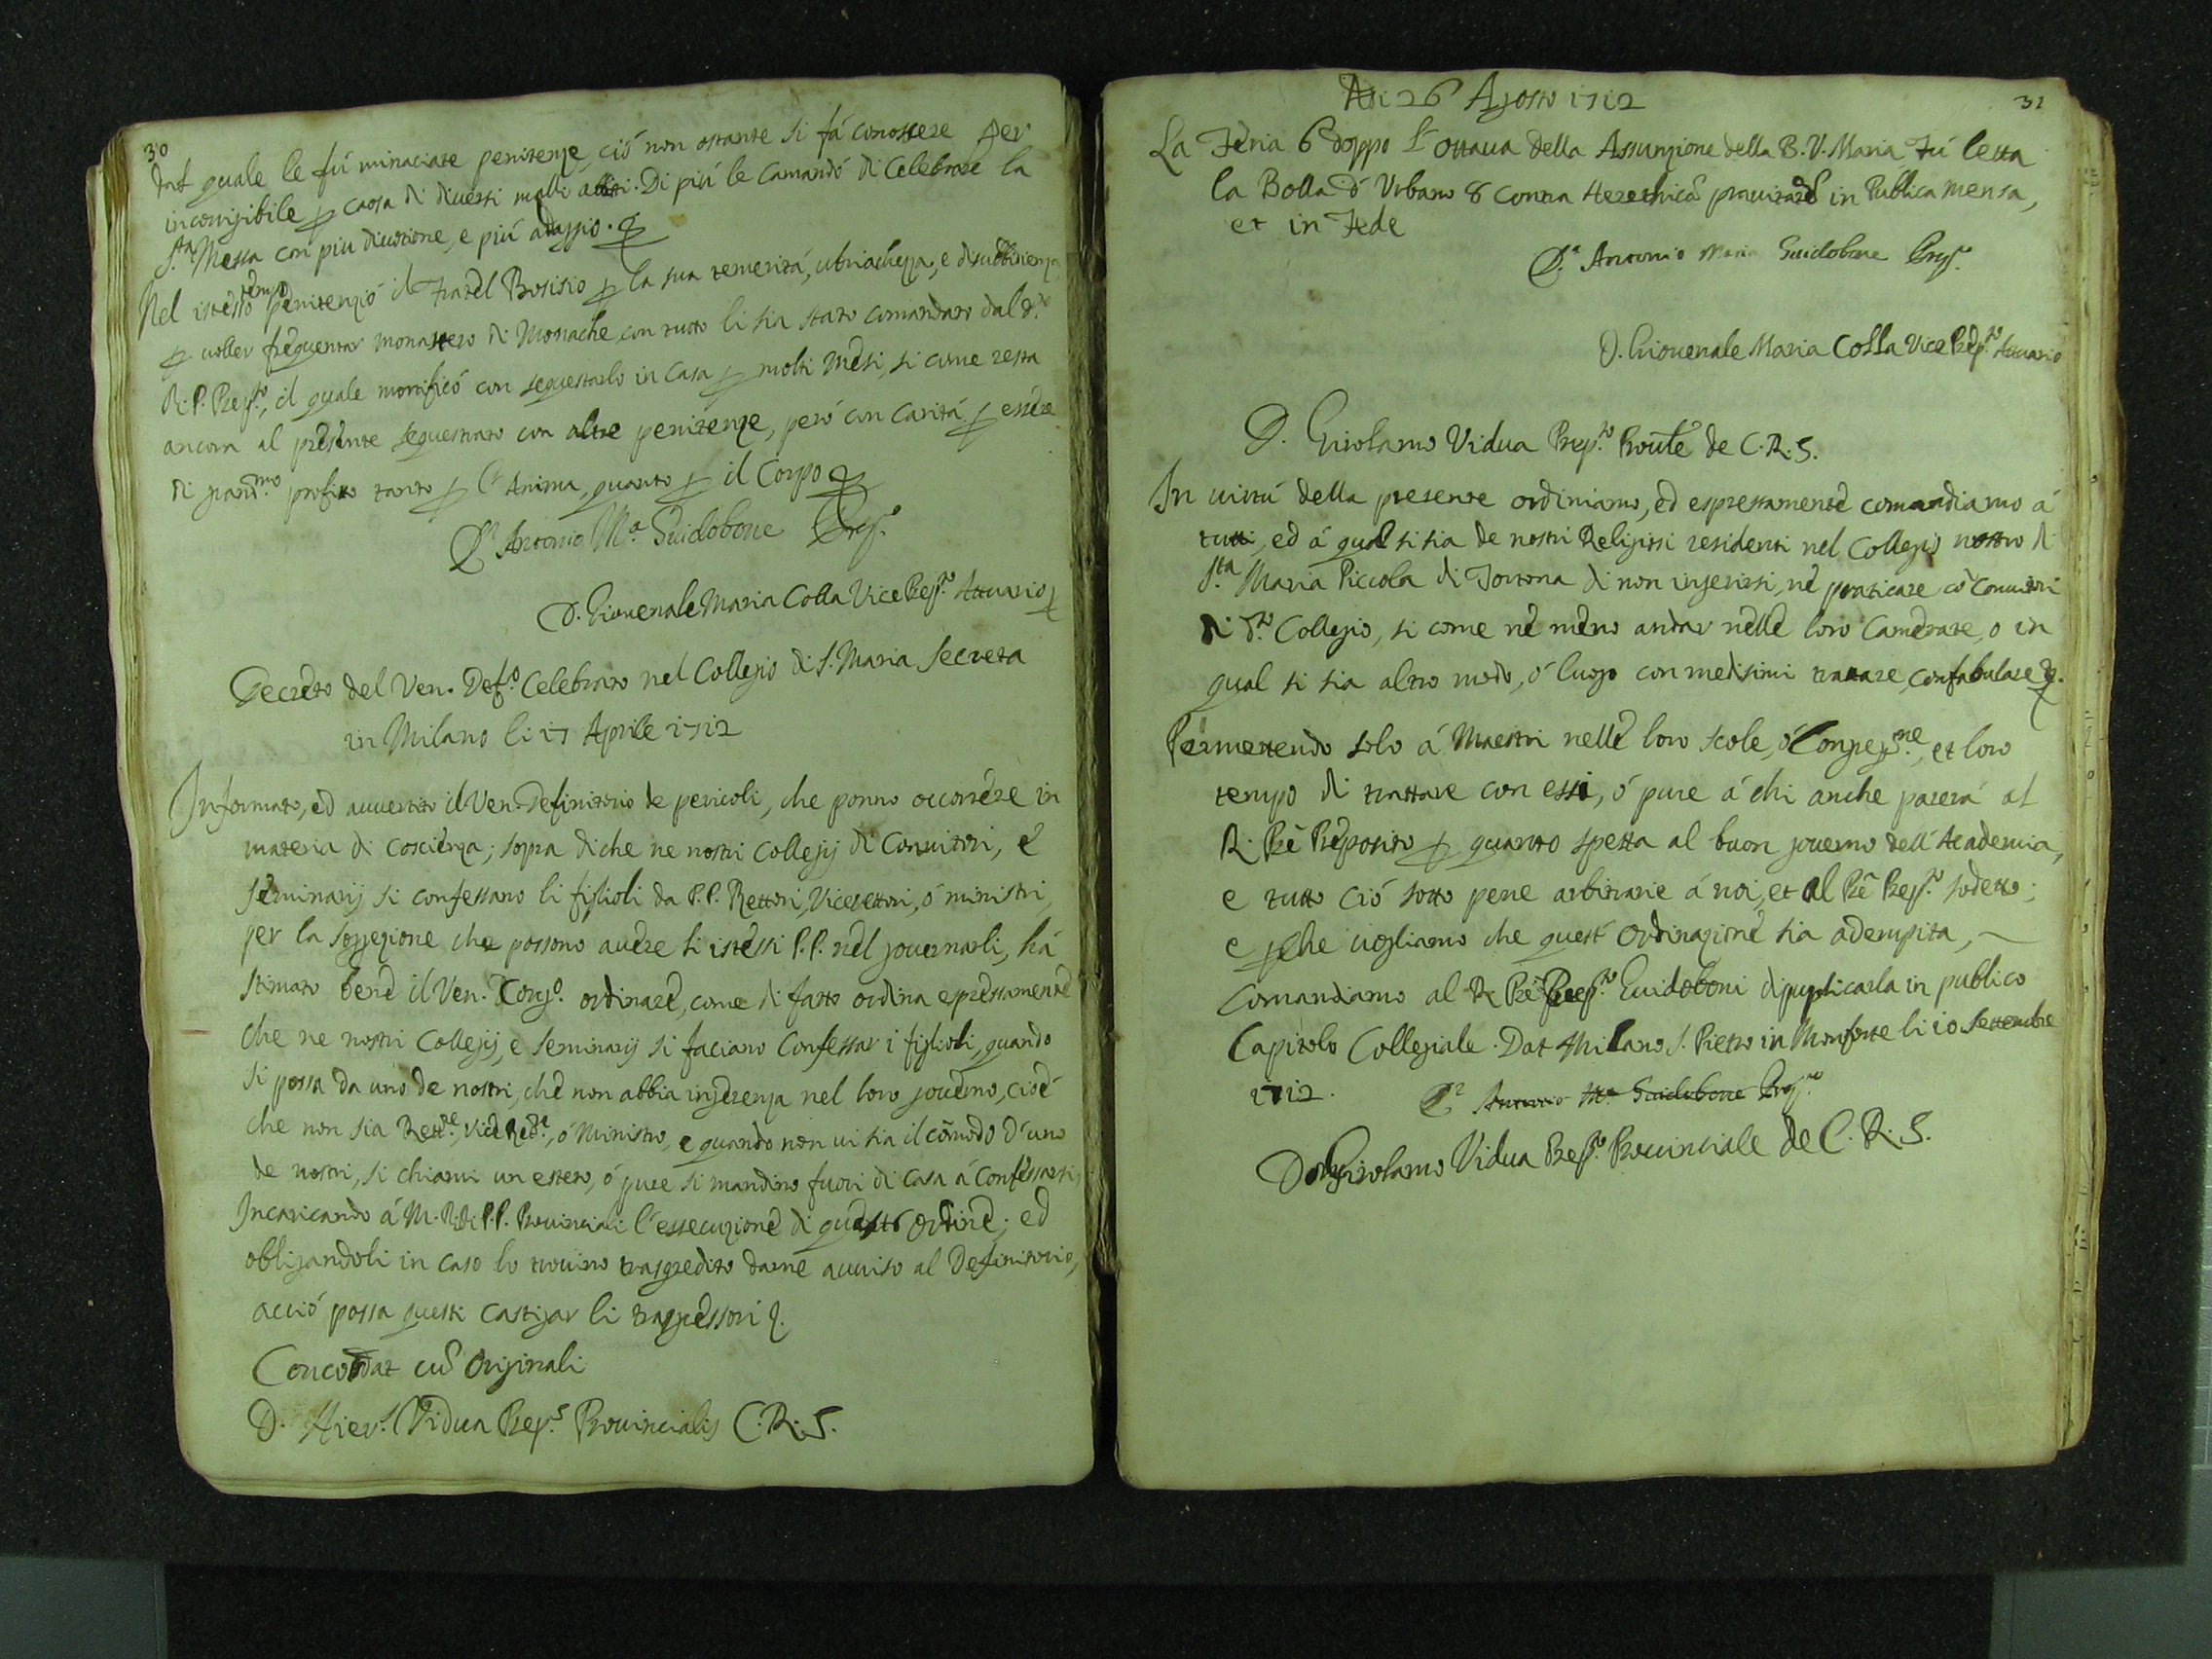 30
dal quale le fú minaciate penitenze, ció non ostante si fá conoscere per
incorrigibile p caosa di diversi malli abiti. Di piú le comandó di Celebrare la
S.ta Messa con piu divotione, e piú adaggio.
Nel istesso tempo penitenzió il Fratel Bosisio p la sua temeritá, ubriachezza, e disubbidienza
p voller frequentar monastero di Monache, con tutto li sia stato comandato dal
R. P. Prep.to, il quale mortificó con sequestarlo in Casa p molti mesi, si come resta
ancora al presente sequestrato con altre penitenze, peró con Caritá p essere
di grand.mo profitto tanto p l'Anima, quanto p il Corpo
D. Antonio M.a Guidobone Prep.
D. Giovenale Maria Colla Vice Prep.to Attuario
Decreto del Ven. Def.o Celebrato nel Collegio di S. Maria Secreta
in Milano li 17 Aprile 1712
Informato, ed avvertito il Ven. Definitorio de pericoli, che ponno occorrere in
materia di Coscienza; sopra di che ne nostri Collegij di Convittori, e
Seminarij si confessano li figlioli da P.P. Rettori, Vicerettori, ó ministri,
per la soggezione che possono avere li istessi P.P. nel governarli, há
stimato bene il Ven. ordinare, come di fatto ordina espressamente
che ne nostri Collegij, e Seminarij si faciano Confessar i figlioli, quando
si possa da uno de nostri, che non abbia ingerenza nel loro governo, cioé
che non sia Rett.e, Vice Ret.e, ó Ministro, e quando non vi sia il cõmodo d'uno
de nostri, si chiami un estero, ó pure si mandino fuori di casa á Confessarsi,
Incaricando á M. R.di P.P. Provinciali l'essecuzione di questo ordine; ed
obligandoli in caso lo trovino trasgredito darne avviso al Definitorio,
acció possa questi castigar li trasgressori
Concordat cũ Originali
D. Hier. Vidua Prep.s Provincialis C.R.S.
31
Adi 26 Agosto 1712
La Feria 6 doppo l'ottava della Assunzione della B. V. Maria Fú letta
la Bolla d'Urbano 8 contra Herethicã pravitatẽ in Publica mensa,
et in Fede
D. Antonio Maria Guidobone Prep.
D. Giovenale Maria Colla Vice Prep.to Attuario
D. Girolamo Vidua Prep.to Prouĩle de C.R.S.
In virtú della presente ordiniamo, ed espressamente comandiamo á
tutti, ed á qual si sia de nostri Religiosi residenti nel Collegio nostro di
S.ta Maria Piccola di Tortona di non ingerirsi, né praticare cõ Convittori
di d.to Collegio, si come né meno andar nelle loro Camerate, o in
qual si sia altro modo, ó luogo con medesimi trattare, confabulare
Permettendo solo á Maestri nelle loro scole, ó Congreg.ne, et loro
tempo di trattare con essi, ó pure á chi anche parerá al
R. Prẽ Preposito p quanto spetta al buon governo dell'Academia,
e tutto ció sotto pene arbitrarie á noi, et al Prẽ Prep.to sodetto;
e pche vogliamo che quest'ordinazione sia adempita,
Comandiamo al R. Prẽ Prep.to Guidoboni di puplicarla in publico
Capitolo Collegiale. Dat Milano S. Pietro in Monforte li 10 Settembre
1712. D. Antonio M.a Guidobone Prep.to
Don Girolamo Vidua Prep.to Provinciale de C.R.S.